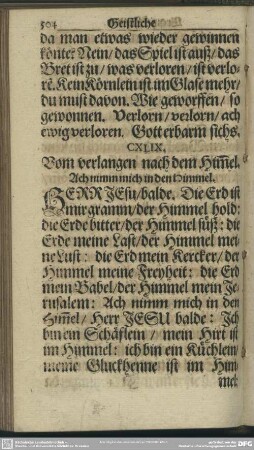 504 Geistliche
da man etwas wieder gewinnen
könte? Nein/ das Spiel ist auß/ das
Bret ist zu/ was verloren/ ist verlo-
rē. Kein Körnlein ist im Glase mehr/
du must davon. Wie geworffen/ so
gewonnen. Verlorn/ verlorn/ ach
ewig verloren. Gott erbarm sichs.
CXLIX.
Vom verlangen nach dem Him̄el.
Ach nimm mich in den Himmel.
HERR JEsu/ balde. Die Erd ist
mir gramm/ der Himmel hold:
die Erde bitter/ der Himmel süß: die
Erde meine Last/ der Himmel mei-
ne Lust: die Erd mein Kercker/ der
Himmel meine Freyheit: die Erd
mein Babel/ der Himmel mein Je-
rusalem: Ach nimm mich in den
Him̄el/ Herr JESU balde: Ich
bin ein Schäflein/ mein Hirt ist
im Himmel: ich bin ein Küchlein/
meine Gluckhenne ist im Him-
mel